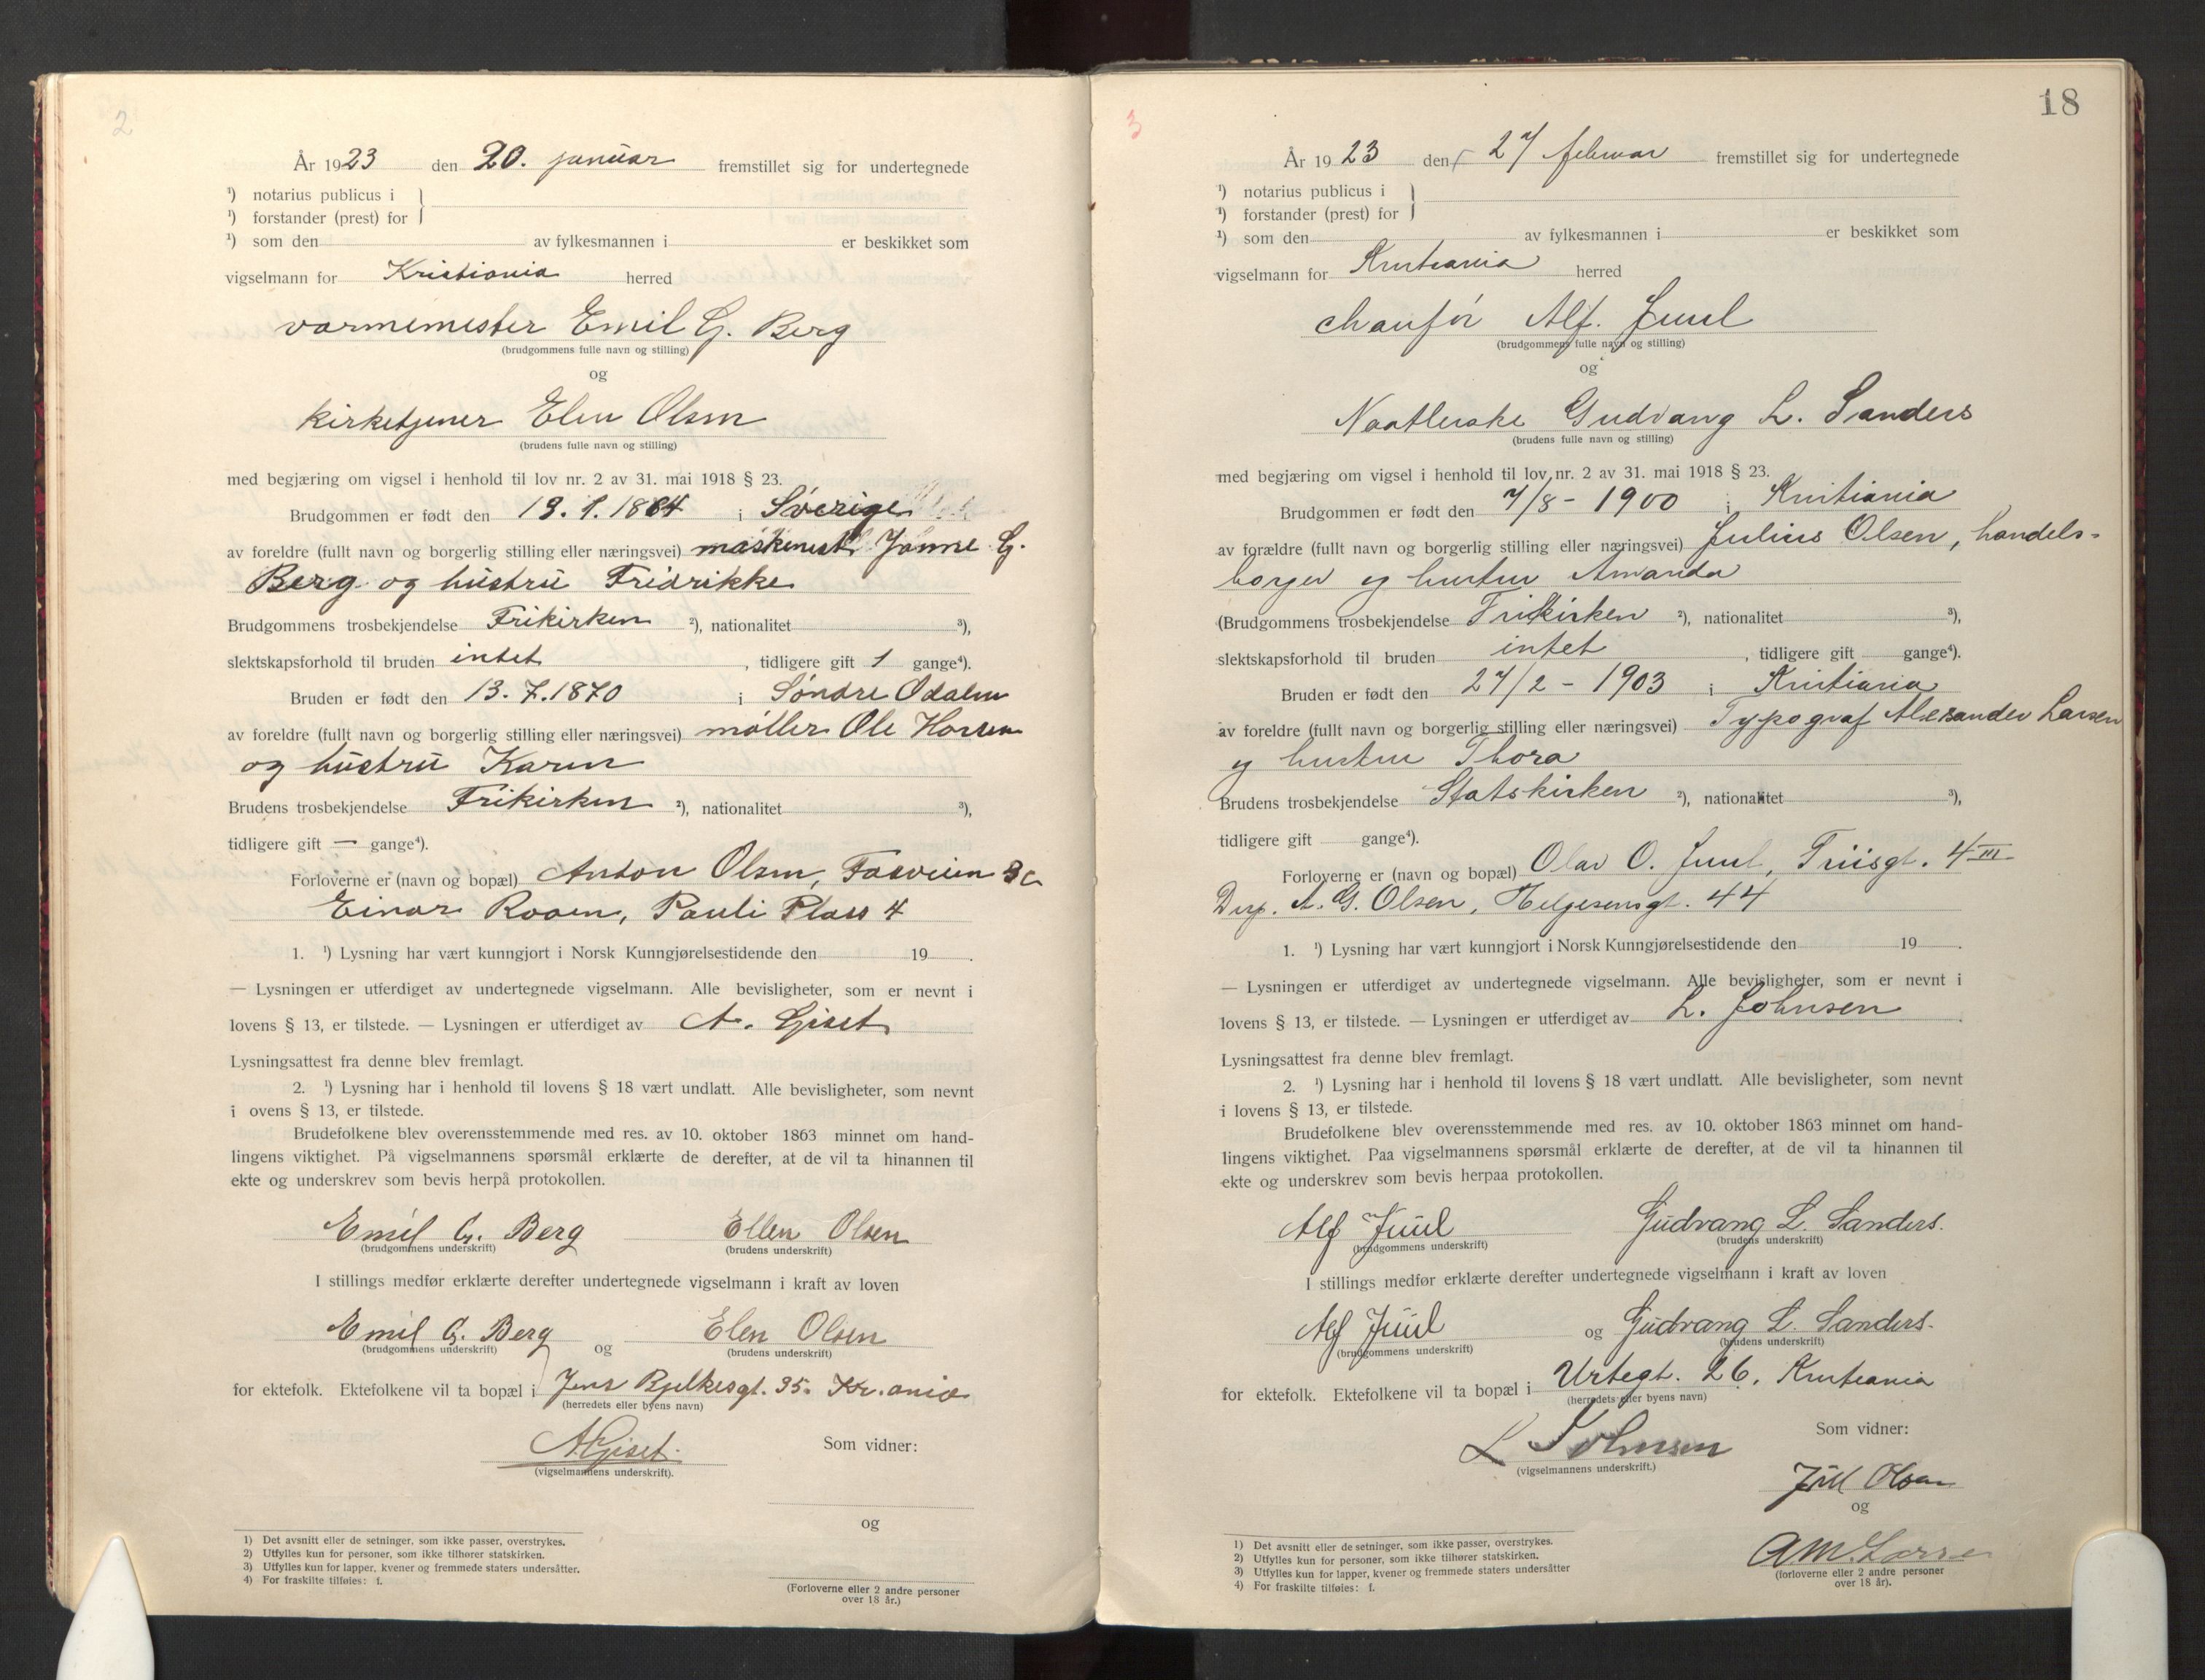 2
År 1923 den 20. januar fremstillet sig for undertegnede
¹) notarius publicus i
¹) forstander (prest) for
¹) som den av fylkesmannen i er beskikket som
vigselmann for Kristiania herred
varmemester Emil G. Berg
(brudgommens fulle navn og stilling)
og
kirketjener Elen Olsen
(brudens fulle navn og stilling)
med begjæring om vigsel i henhold til lov nr. 2 av 31. mai 1918 § 23.
Brudgommen er født den 13. 1. 1864 i Sverige
av foreldre (fullt navn og borgerlig stilling eller næringsvei) maskinest G.
Berg og hustru Fridrikke
Brudgommens trosbekjendelse Frikirken ²), nationalitet ³),
slektskapsforhold til bruden intet, tidligere gift 1 gange⁴).
Bruden er født den 13. 7. 1870 i Søndre Odalen
av foreldre (fullt navn og borgerlig stilling eller næringsvei) møller Ole Hansen
og hustru Karen
Brudens trosbekjendelse Frikirken ²), nationalitet ³),
tidligere gift — gange⁴).
Forloverne er (navn og bopæl) Anton Olsen,
Einar Roaen, Pauli Plass 4
1. ¹) Lysning har vært kunngjort i Norsk Kunngjørelsestidende den 19 .
— Lysningen er utferdiget av undertegnede vigselmann. Alle bevisligheter, som er nevnt i
lovens § 13, er tilstede. — Lysningen er utferdiget av A. Giset
Lysningsattest fra denne blev fremlagt.
2. ¹) Lysning har i henhold til lovens § 18 vært undlatt. Alle bevisligheter, som nevnt
i ovens § 13, er tilstede.
Brudefolkene blev overensstemmende med res. av 10. oktober 1863 minnet om hand-
lingens viktighet. På vigselmannens spørsmål erklærte de derefter, at de vil ta hinannen til
ekte og underskrev som bevis herpå protokollen.
Emil G. Berg Ellen Olsen
(brudgommens underskrift) (brudens underskrift)
I stillings medfør erklærte derefter undertegnede vigselmann i kraft av loven
Emil G. Berg og Elen Olsen
(brudgommens underskrift) (brudens underskrift)
for ektefolk. Ektefolkene vil ta bopæl i Jens Bjelkesgt. 35. Kr.ania
(herredets eller byens navn)
A Giset.
(vigselmannens underskrift).
Som vidner:
og
(Forloverne eller 2 andre personer
over 18 år.)
1) Det avsnitt eller de setninger, som ikke passer, overstrykes.
2) Utfylles kun for personer, som ikke tilhører statskirken.
3) Utfylles kun for lapper, kvener og fremmede staters undersåtter.
4) For fraskilte tilføies: f.
3
18
År 1923 den 27 februar fremstillet sig for undertegnede
¹) notarius publicus i
¹) forstander (prest) for
¹) som den av fylkesmannen i er beskikket som
vigselmann for Kristiania herred
chaufør Alf. Juul
(brudgommens fulle navn og stilling)
og
Naatlerske Gudvang L. Sanders
(brudens fulle navn og stilling)
med begjæring om vigsel i henhold til lov nr. 2 av 31. mai 1918 § 23.
Brudgommen er født den 7/8 - 1900 i Kristiania
av forældre (fullt navn og borgerlig stilling eller næringsvei) Julius Olsen, handels-
borger og hustru Amanda
(Brudgommens trosbekjendelse Frikirken ²), nationalitet ³),
slektskapsforhold til bruden intet, tidligere gift gange⁴).
Bruden er født den 27/2 - 1903 i Kristiania
av foreldre (fullt navn og borgerlig stilling eller næringsvei) Typograf Alexander Larsen
og hustru Thora
Brudens trosbekjendelse Statskirken ²), nationalitet ³),
tidligere gift gange⁴).
Forloverne er (navn og bopæl) Olav O. Juul, Friisgt. 4 III
Disp. A. G. Olsen, Helgesensgt. 44
1. ¹) Lysning har vært kunngjort i Norsk Kunngjørelsestidende den 19 .
— Lysningen er utferdiget av undertegnede vigselmann. Alle bevisligheter, som er nevnt i
lovens § 13, er tilstede. — Lysningen er utferdiget av L. Johnsen
Lysningsattest fra denne blev fremlagt.
2. ¹) Lysning har i henhold til lovens § 18 vært undlatt. Alle bevisligheter, som nevnt
i lovens § 13, er tilstede.
Brudefolkene blev overensstemmende med res. av 10. oktober 1863 minnet om hand-
lingens viktighet. Paa vigselmannens spørsmål erklærte de derefter, at de vil ta hinannen til
ekte og underskrev som bevis herpaa protokollen.
Alf Juul Gudvang L. Sanders.
(brudgommens underskrift) (brudens underskrift)
I stillings medfør erklærte derefter undertegnede vigselmann i kraft av loven
Alf Juul og Gudvang L. Sanders.
(brudgommens underskrift) (brudens underskrift)
for ektefolk. Ektefolkene vil ta bopæl i Urtegt. 26, Kristiania
(herredets eller byens navn)
L Johnsen
(vigselmannens underskrift.)
Som vidner:
Olsen
og
A M. Larsen
(forloverne eller 2 andre personer
over 18 år).
1) Det avsnitt eller de setninger, som ikke passer, overstrykes.
2) Utfylles kun for personer, som ikke tilhører statskirken.
3) Utfylles kun for lapper, kvener og fremmede staters undersåtter
4) For fraskilte tilføies: f.